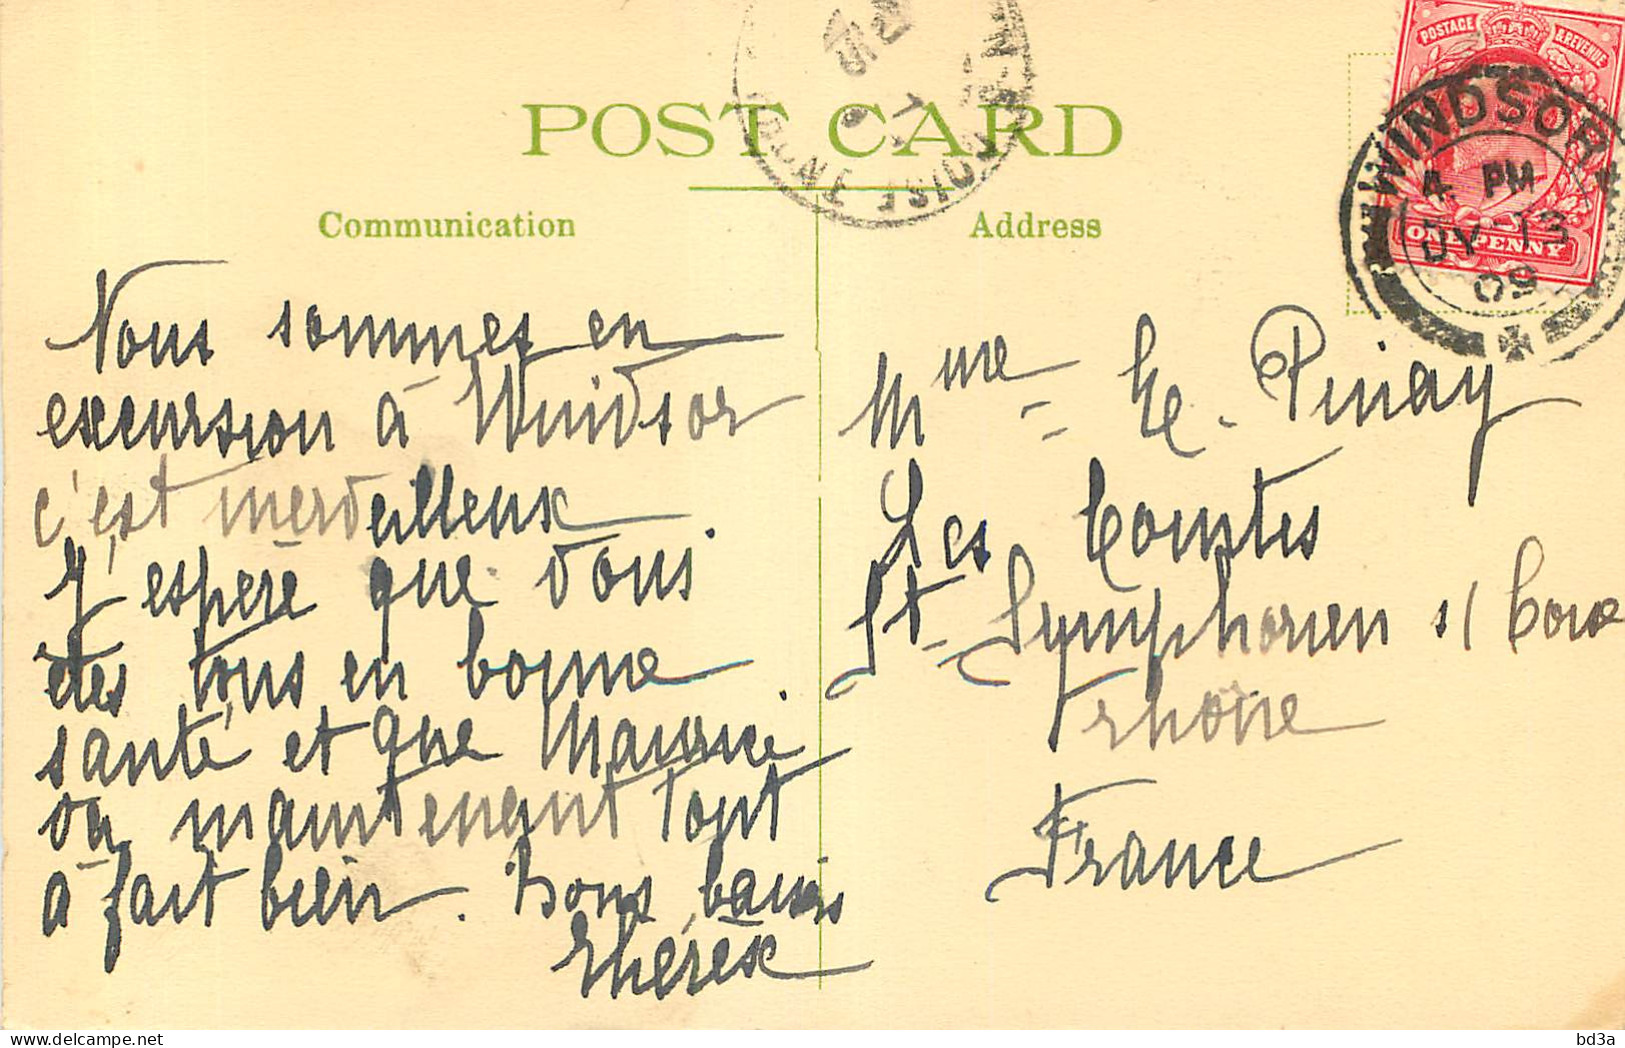 POST CARD
Communication
Address
POSTAGE & REVENUE
ONE PENNY
WINDSOR
4 PM
JY 13
09
Nous sommes en
excursion à Windsor
c'est merveilleux
J'espère que vous
êtes tous en bonne
santé et que Maurice
va maintenant tout
à fait bien. Bons baisers
Thérèse
Mme Pinay
Les Comtes
St Symphorien s/ Coise
Rhône
France
bd3a